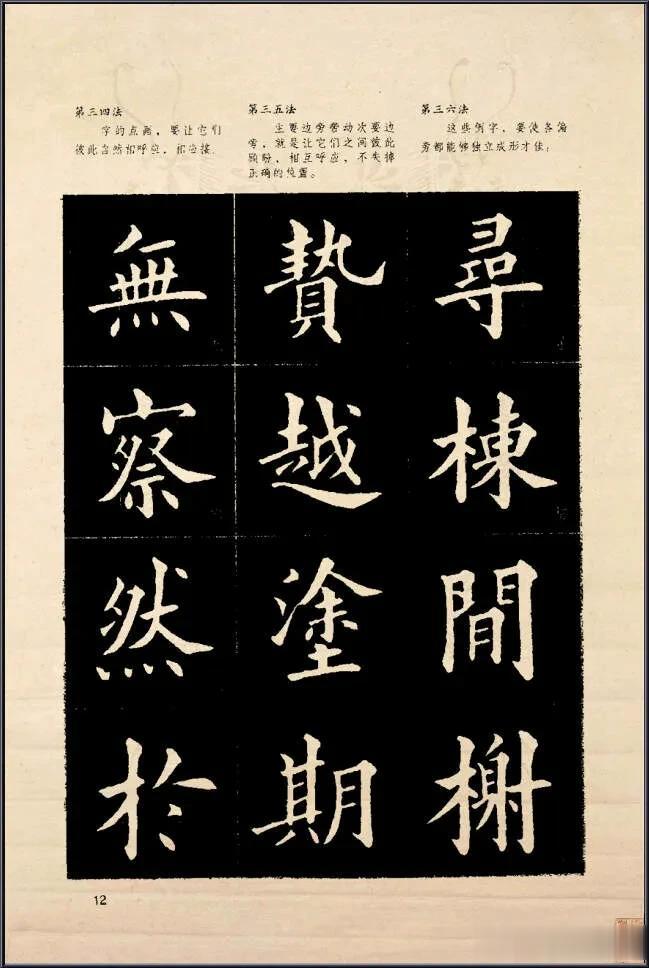 第三四法
字的点画，要让它们
彼此自然相呼应，相迎接
第三五法
主要边旁带动次要边
旁，就是让它们之间彼此
顾盼，相互呼应，不失掉
正确的位置。
第三六法
这些例字，要使各偏
旁都能够独立成形才佳；
無
察
然
於
贄
越
塗
期
尋
棟
間
榭
12